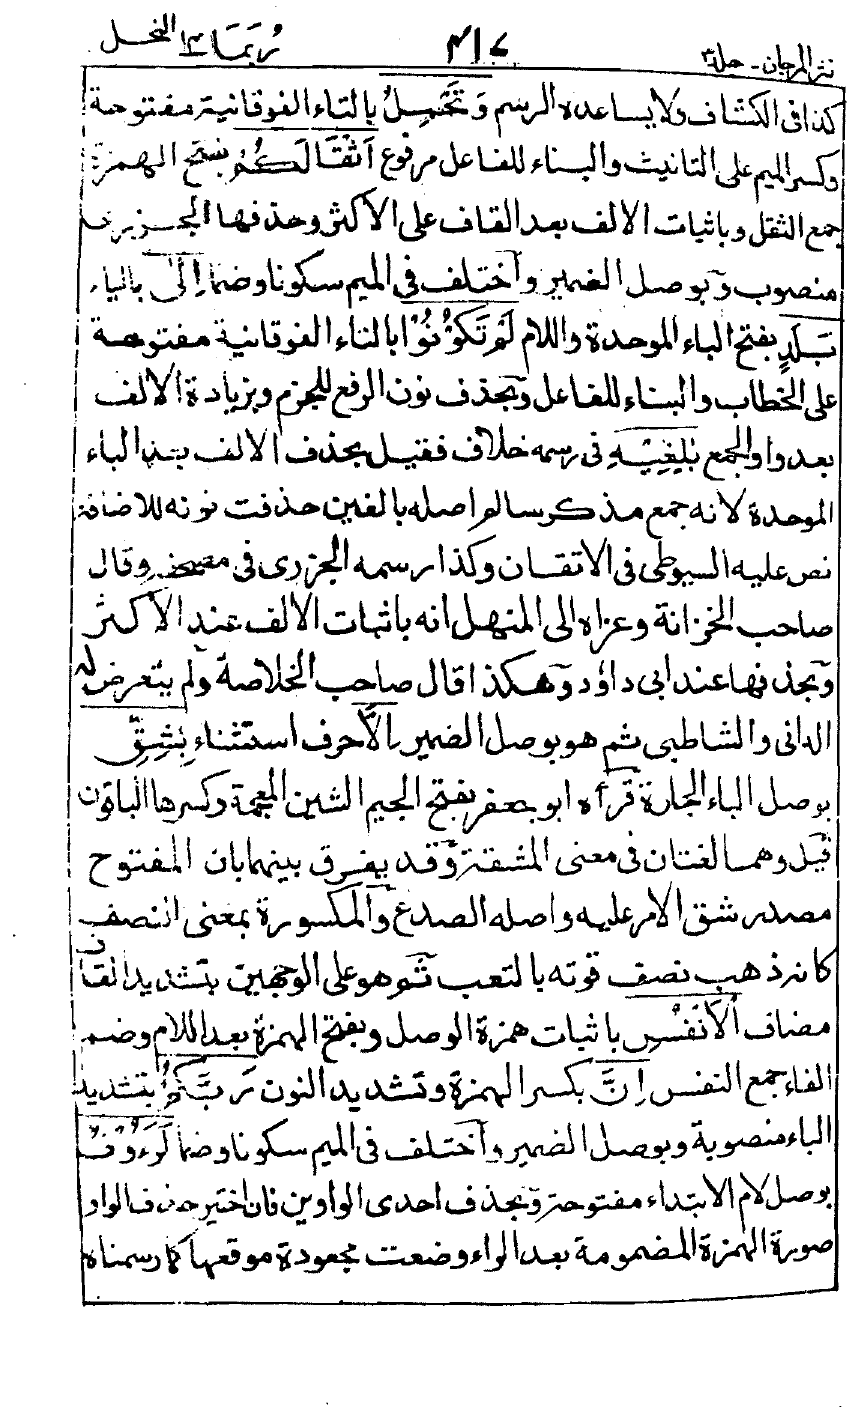 نثر المرجان - جلد ٣ ٤١٧ ربما ١٤ النحل
كذا فى الكشاف ولا يساعده الرسم وَتَحْمِلُ بالتاء الفوقانية مفتوحة
وكسر الميم على التانيث والبناء للفاعل مرفوع اَثْقَالَكُمْ بفتح الهمزة
جمع الثقل وباثبات الالف بعد القاف على الاكثر وحذفها الجزرى
منصوب وبوصل الضمير واختلف فى الميم سكونا وضما اِلٰى بالياء
بَلَدٍ بفتح الباء الموحدة واللام لَمْ تَكُوْنُوْا بالتاء الفوقانية مفتوحة
على الخطاب والبناء للفاعل وبحذف نون الرفع للجزم وبزيادة الالف
بعد واو الجمع بٰلِغِيْهِ فى رسمه خلاف فقيل بحذف الالف بعد الباء
الموحدة لانه جمع مذكر سالم اصله بالغين حذفت نونه للاضافة
نص عليه السيوطى فى الاتقان وكذا رسمه الجزرى فى مصحفه وقال
صاحب الخزانة وعزاه الى المنهل انه باثبات الالف عند الاكثر
وبحذفها عند ابى داؤد وهكذا قال صاحب الخلاصة ولم يتعرض له
الدانى والشاطبى ثم هو بوصل الضمير اِلَّا حرف استثناء بِشِقِّ
بوصل الباء الجارة قرأه ابو جعفر بفتح الجيم الشين المعجمة وكسرها الباقون
قيل وهما لغتان فى معنى المشقة وقد يفرق بينهما بان المفتوح
مصدر شق الامر عليه واصله الصدع والمكسورة بمعنى النصف
كانه ذهب نصف قوته بالتعب ثم هو على الوجهين بتشديد القاف
مضاف الْاَنْفُسِ باثبات همزة الوصل وبفتح الهمزة بعد اللام وضم
الفاء جمع النفس اِنَّ بكسر الهمزة وتشديد النون رَبَّكُمْ بتشديد
الباء منصوبة وبوصل الضمير واختلف فى الميم سكونا وضما لَرَءُوْفٌ
بوصل لام الابتداء مفتوحة وبحذف احدى الواوين فان اختير حذف الواو
صورة الهمزة المضمومة بعد الراء وضعت مجعودة موقعها كما رسمناه